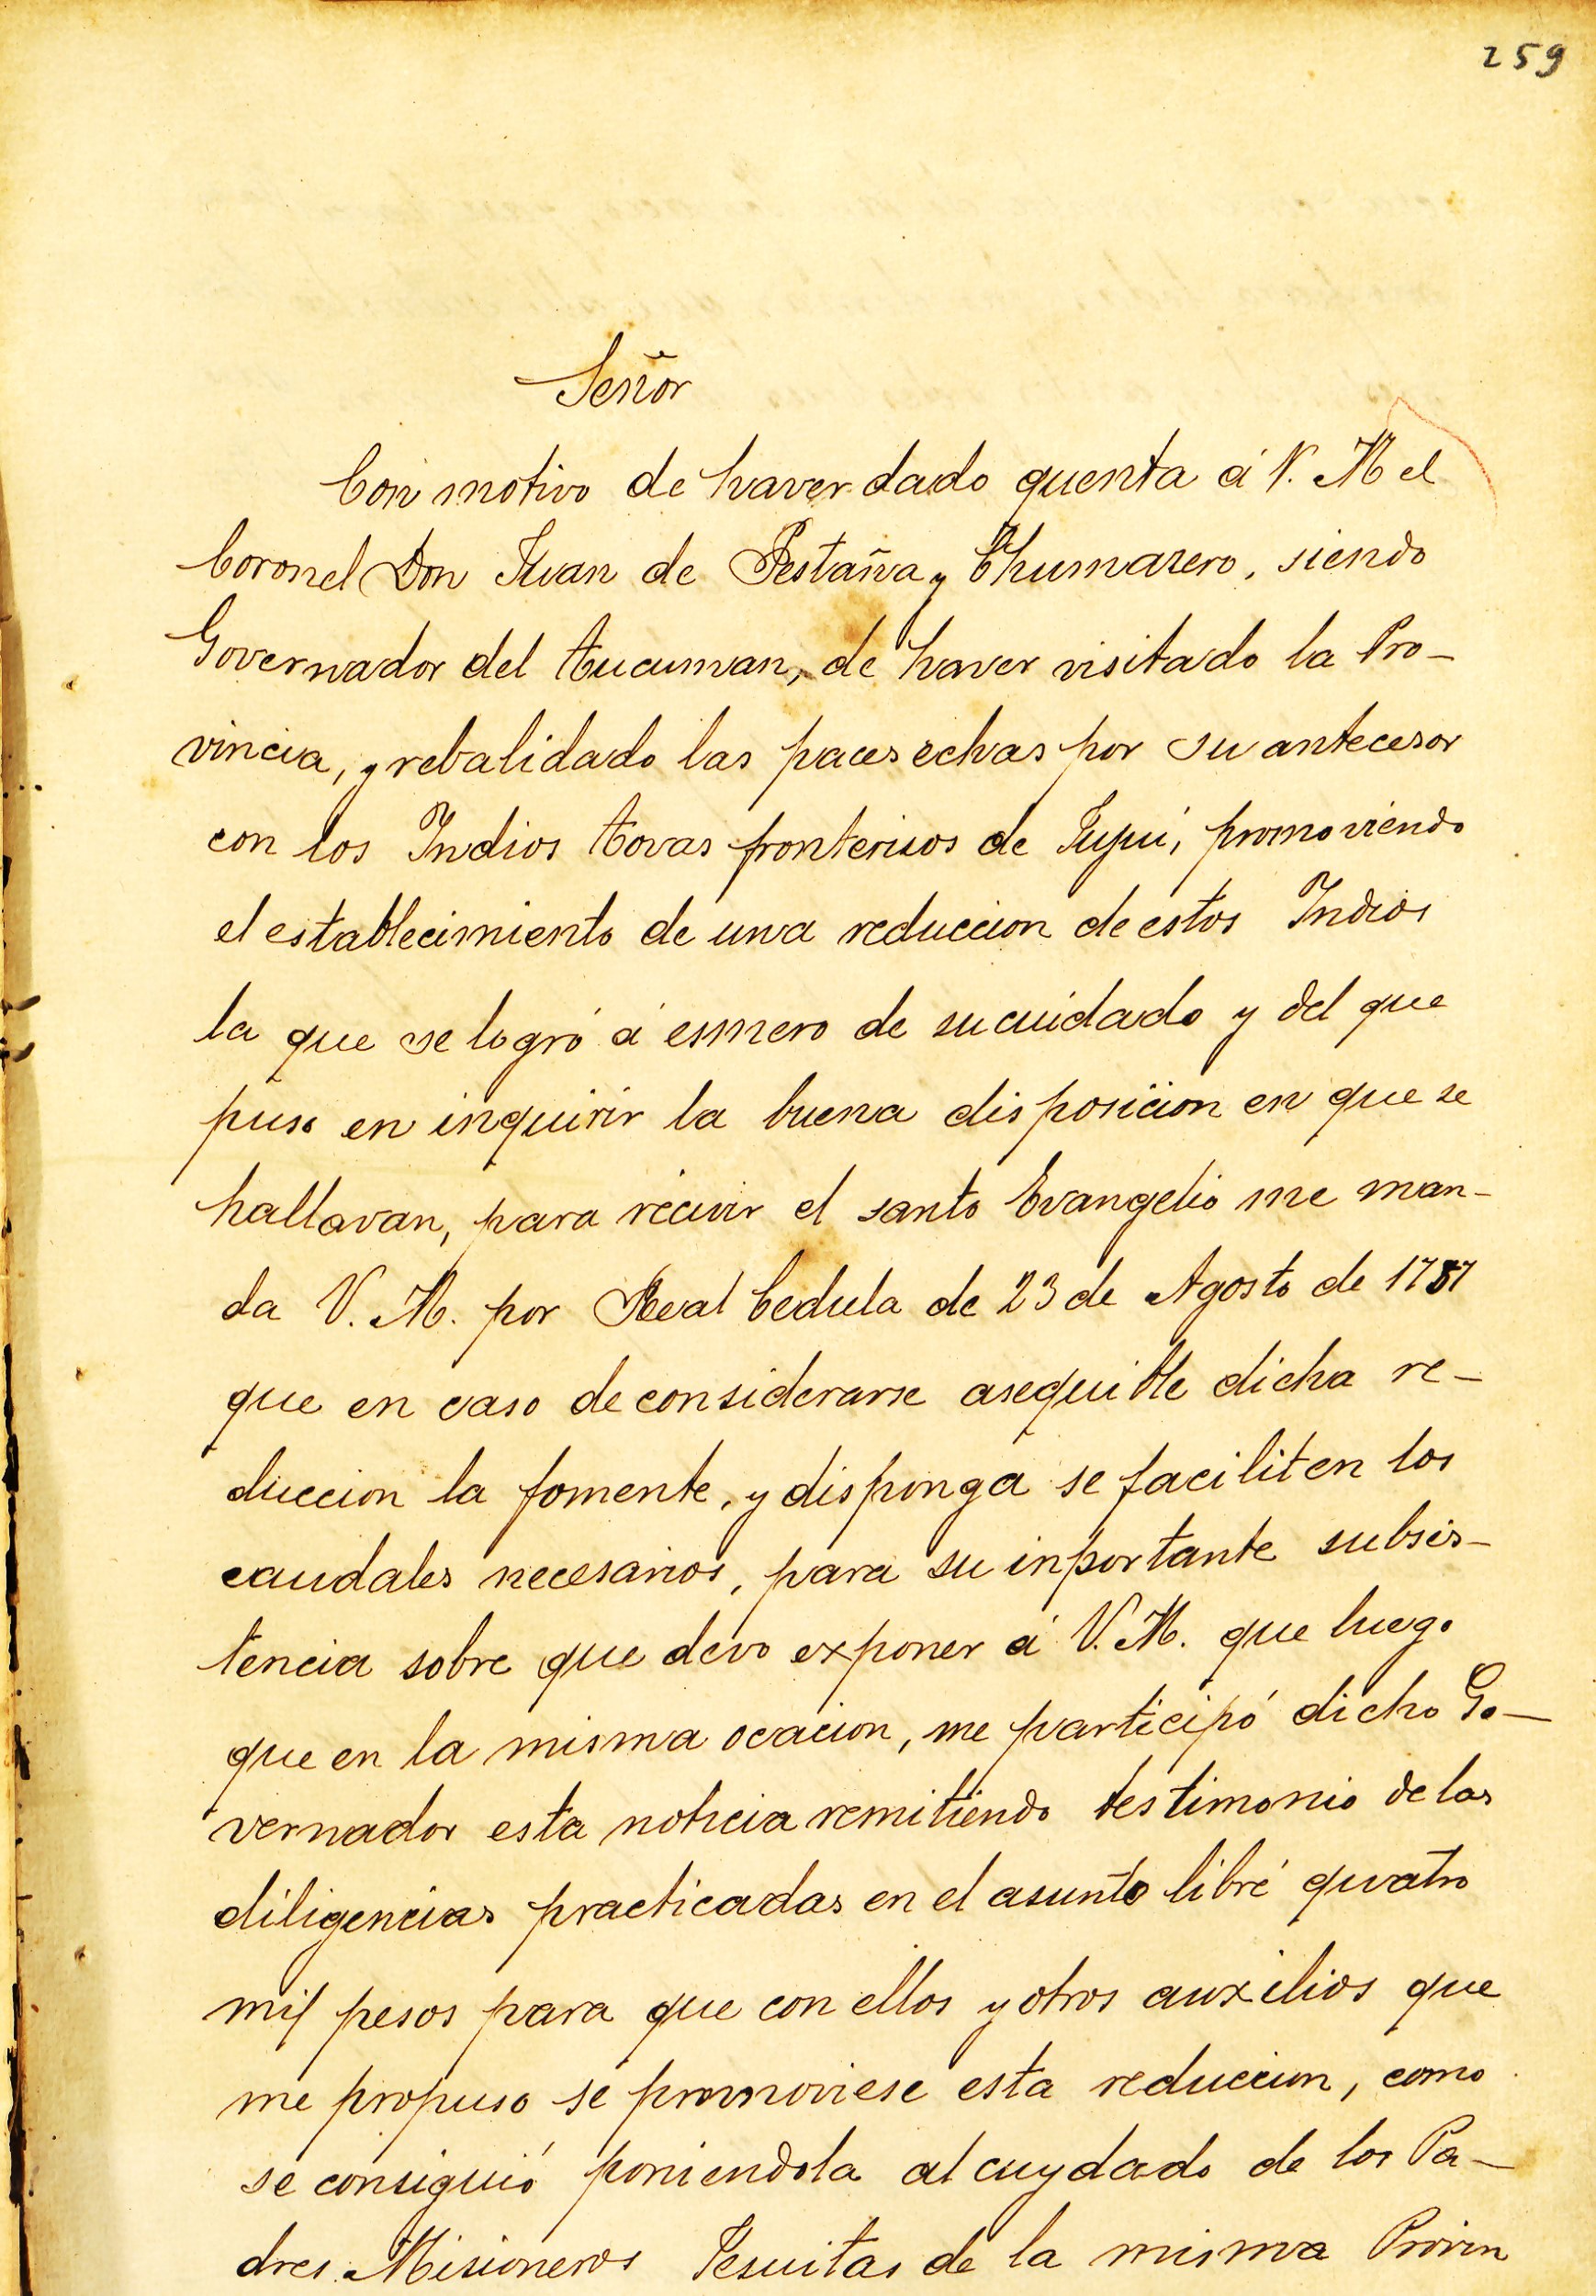 259
Señor
Con motivo de haver dado quenta á V. M el
Coronel Don Juan de Pestaña y Chumazero, siendo
Governador del Tucuman, de haver visitado la Pro-
vincia, y rebalidado las paces echas por su antecesor
con los Indios Tovas fronterisos de Jujui, promoviendo
el establecimiento de una reduccion de estos Indios
la que se logró á esmero de su cuidado y del que
puso en inquirir la buena disposicion en que se
hallavan, para recivir el santo Evangelio me man-
da V. M. por Real Cedula de 23 de Agosto de 1757
que en caso de considerarse asequible dicha re-
duccion la fomente, y disponga se faciliten los
caudales necesarios, para su inportante subsis-
tencia sobre que devo exponer á V. M. que luego
que en la misma ocacion, me participó dicho Go-
vernador esta noticia remitiendo testimonio de las
diligencias practicadas en el asunto libré quatro
mil pesos para que con ellos y otros auxilios que
me propuso se promoviese esta reduccion, como
se consiguió poniendola al cuydado de los Pa-
dres Misioneros Jesuitas de la misma Provin